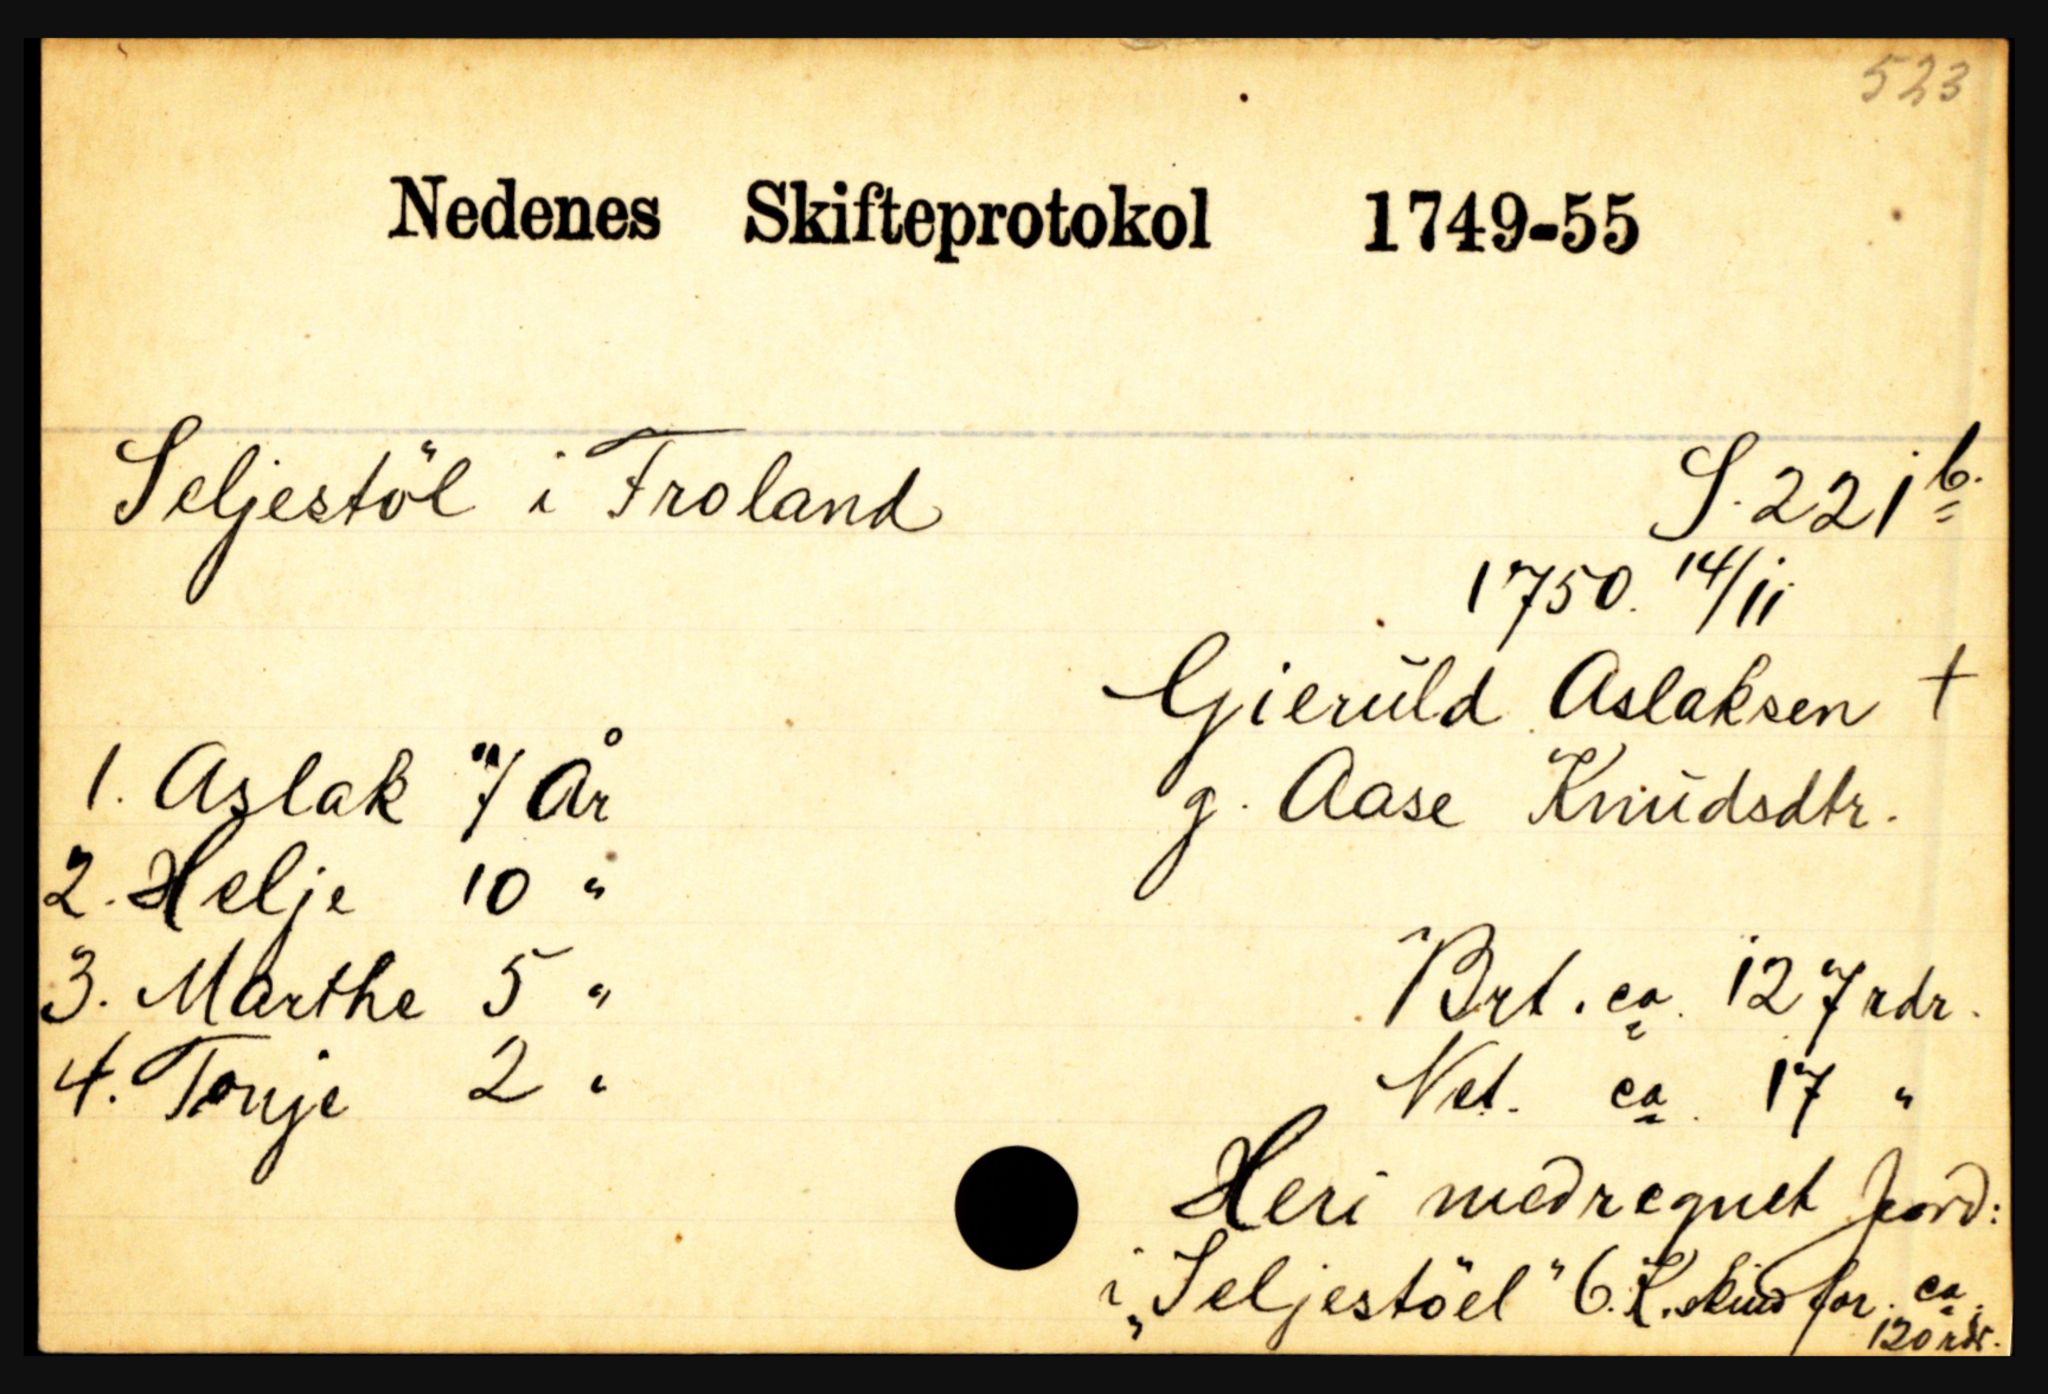 523
Nedenes Skifteprotokol 1749-55
Seljestöl i Froland
S. 221 b.
1750. 14/11
Gierŭld Aslaksen +
g. Aase Knŭdsdtr.
1. Aslak 7 År
2. Helje 10 "
3. Marthe 5 "
4. Tonje 2 "
Brt. ca. 127 rdr.
Net. ca. 17 "
Heri medregnet jord:
i „Seljestöel" 6. K. skind for ca.
120 rdr.